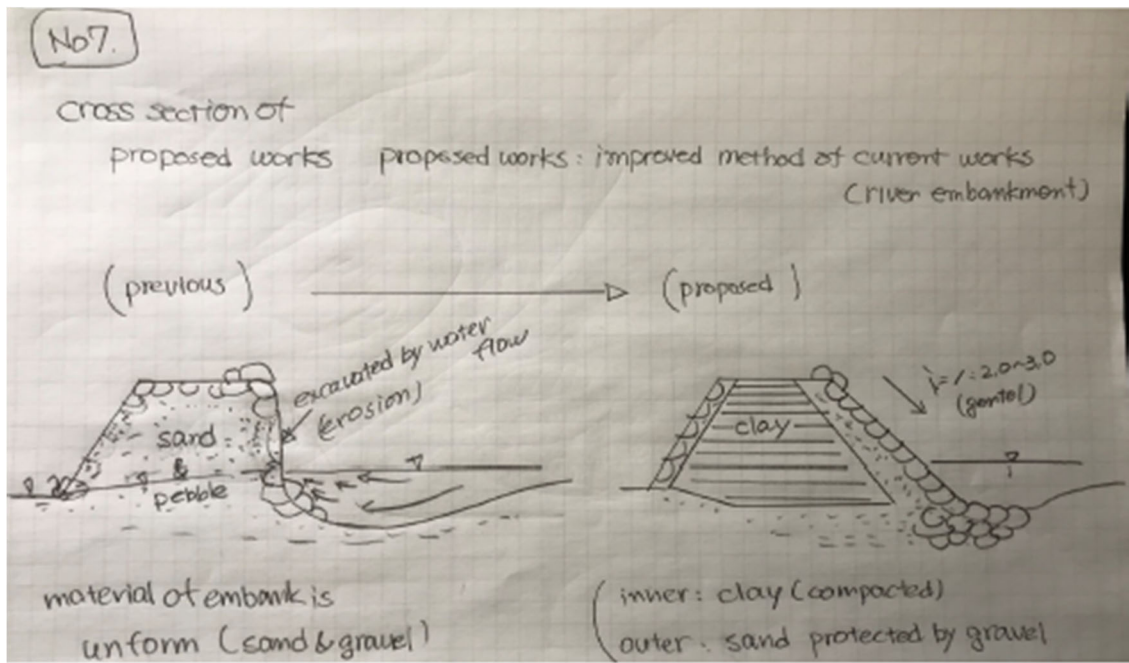 No7.
cross section of
proposed works
proposed works : improved method of current works
(river embankment)
(previous)
(proposed)
excavated by water flow
(erosion)
i=1:2.0~3.0
(gentol)
sand
&
pebble
clay
material of embank is
unform (sand & gravel)
inner : clay (compacted)
outer . sand protected by gravel